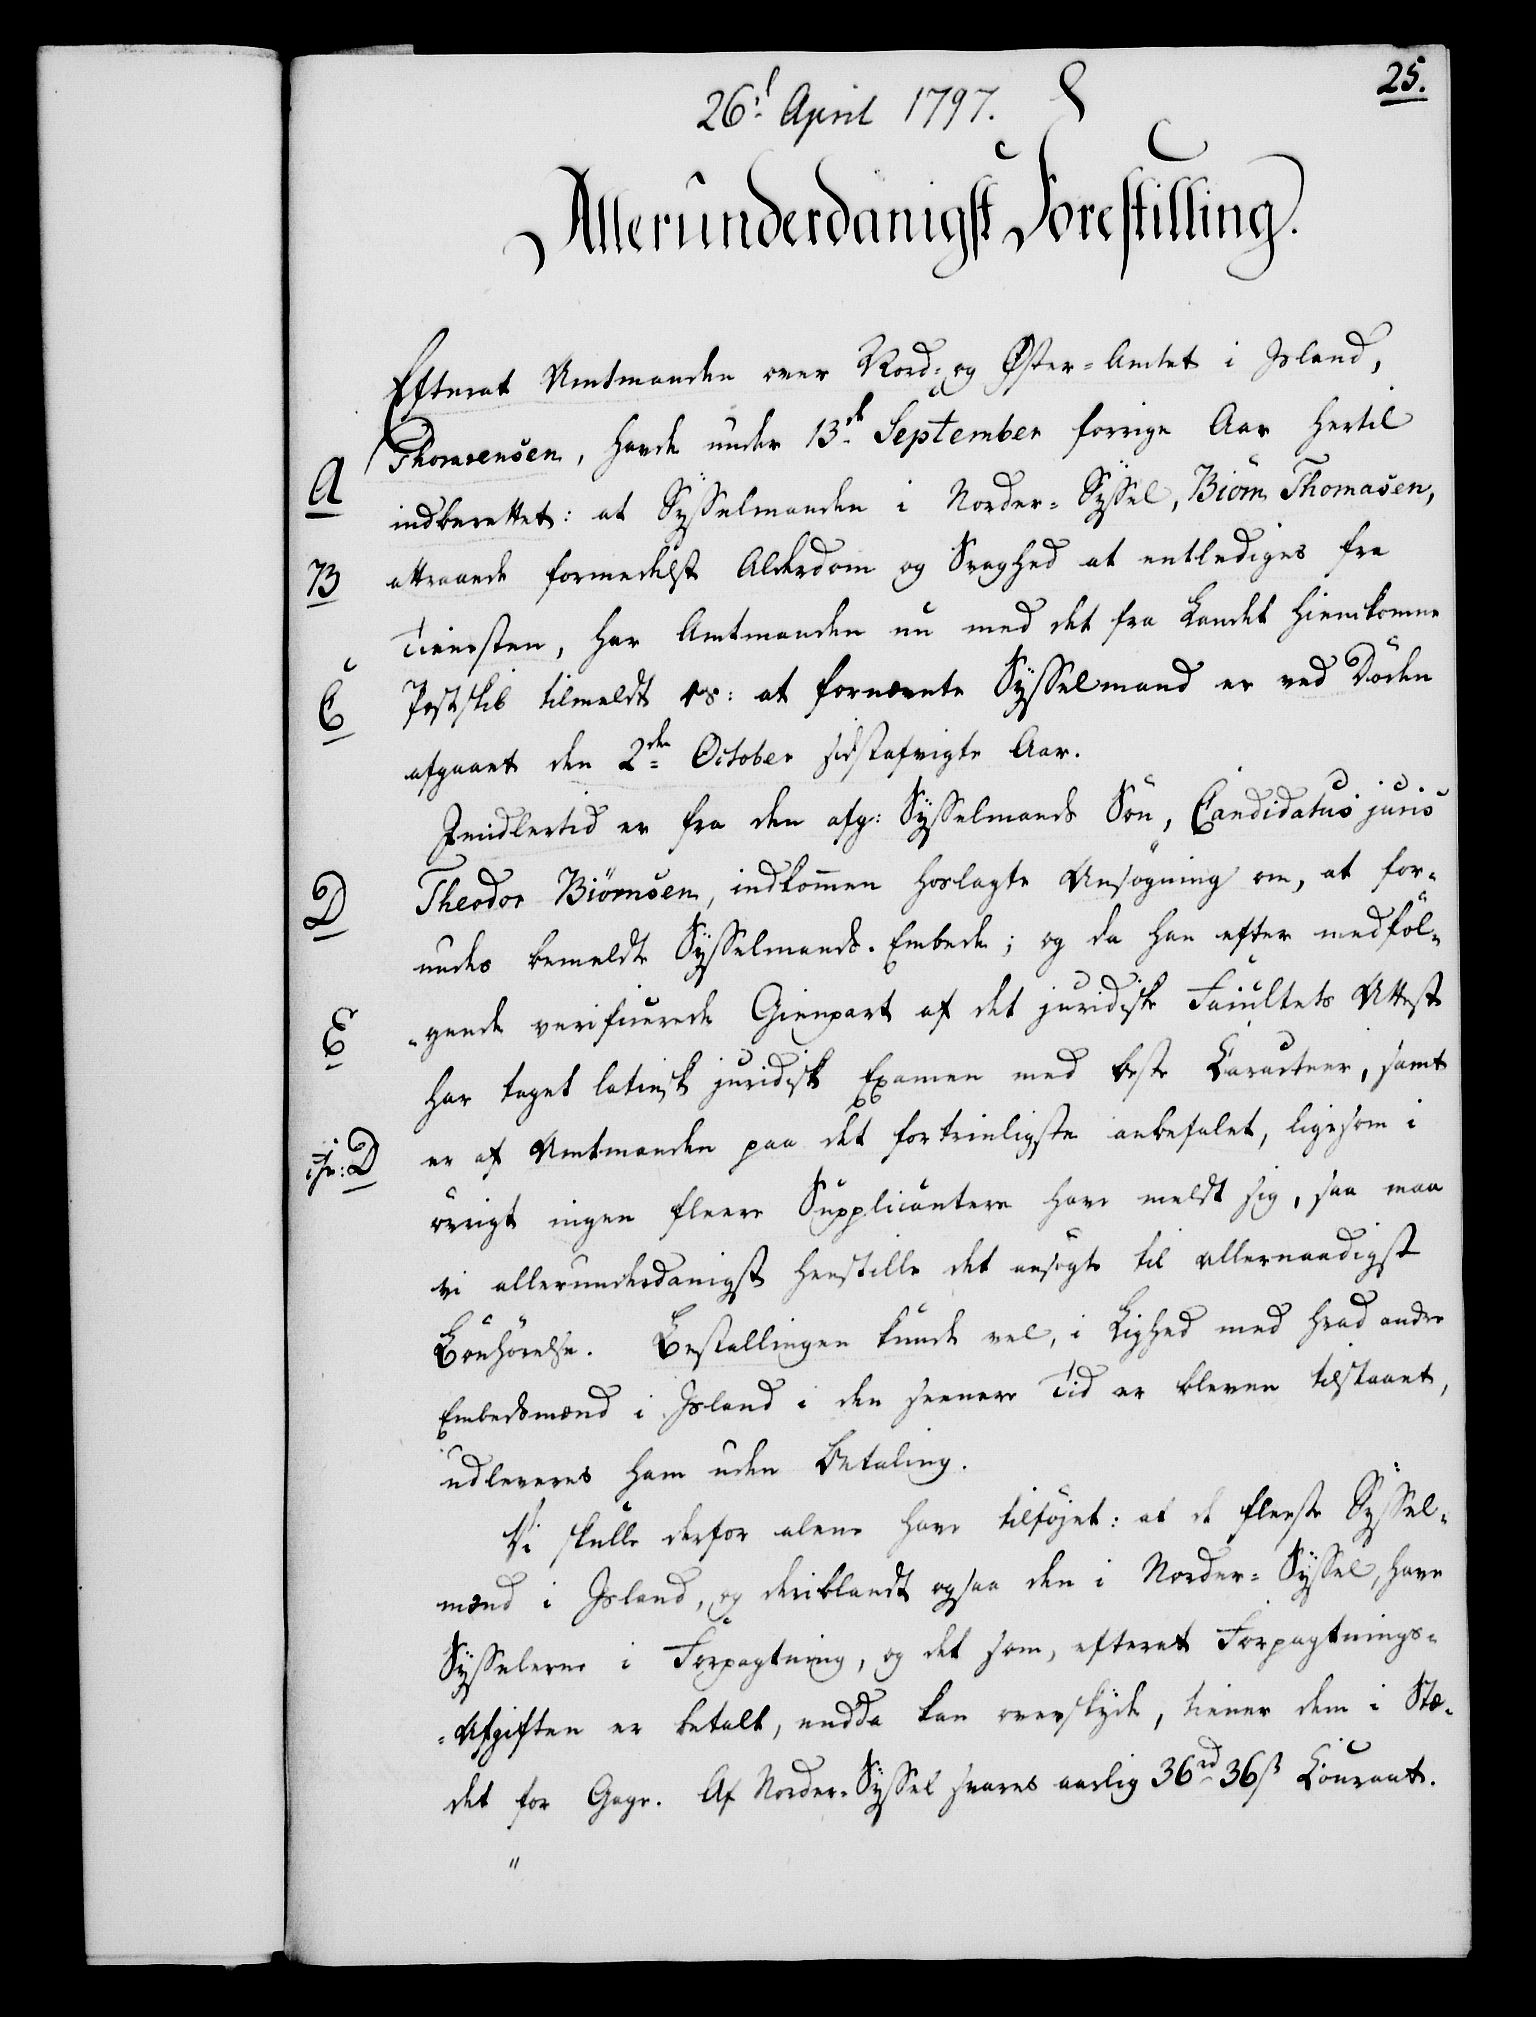 25.
26d April 1797.
Allerunderdanigst Forestilling.
Efterat Amtmanden over Nord- og Øster-Amtet i Island,
Thorarensen, havde under 13de September forrige Aar hertil
A
indberettet: at Sÿsselmanden i Norder-Sÿssel, Biörn Thomasen,
B
attraaede formedelst Alderdom og Svaghed at entlediges fra
Tienesten, har Amtmanden nu med det fra Landet hiemkomne
C
Postskib tilmeldt os: at fornevnte Sÿsselmand er ved Döden
afgaaet den 2den October sidstafvigte Aar.
Imidlertid er fra den afg: Sÿsselmands Sön, Candidatus juris
D
Theodor Biörnsen, indkommen hoslagte Ansögning om, at for-
undes bemeldte Sÿsselmands-Embede; og da han efter medföl-
E
-gende verificerede Gienpart af det juridiske Facultets Attest
har taget latinsk juridisk Examen med beste Caracteer, samt
cfr: D
er af Amtmanden paa det fortrinligste anbefalet, ligesom i
övrigt ingen fleere Supplicantere have meldt sig, saa maa
vi allerunderdanigst henstille det ansögte til allernaadigst
Bönhörelse. Bestallingen kunde vel, i Lighed med hvad andre
Embedsmænd i Island i den seenere Tid er bleven tilstaaet,
udleveres ham uden Betaling.
Vi skulle derfor alene have tilföjet: at de fleeste Sÿssel-
mænd i Island, og deriblandt ogsaa den i Norder-Sÿssel, have
Sÿsselerne i Forpagtning, og det som, efterat Forpagtnings-
-Afgiften er betalt, endda kan overskyde, tiener dem i Stæ-
det for Gage. Af Norder-Sÿssel svares aarlig 36rd 36ß Courant.
"